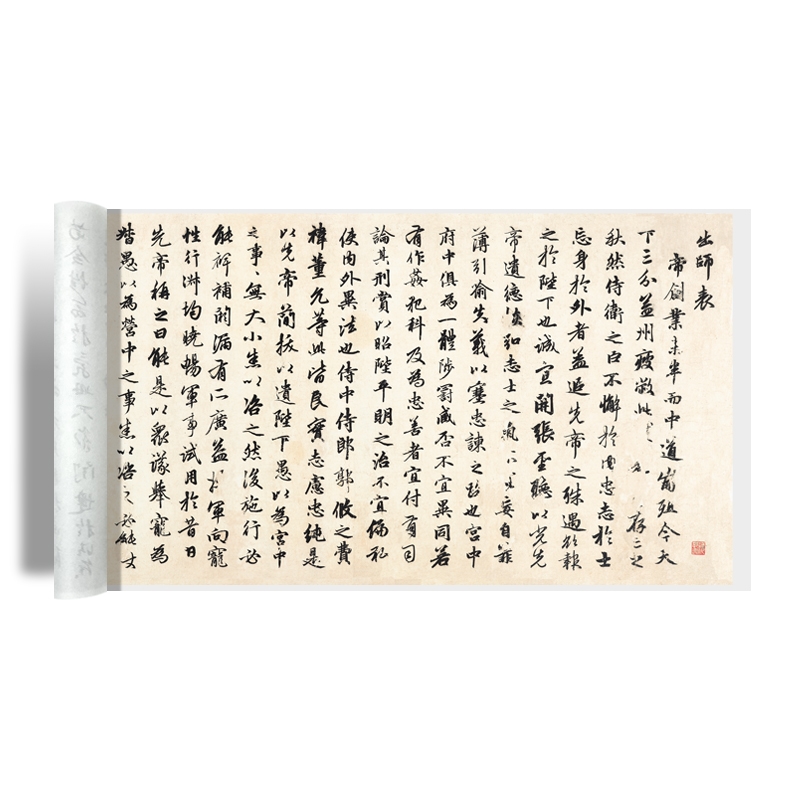 出師表
帝創業未半而中道崩殂今天
下三分益州疲敝此存亡之
秋然侍衛之臣不懈於内忠志於士
忘身於外者蓋追先帝之殊遇欲報
之於陛下也誠宜開張聖聽以光先
帝遺德恢弘志士之氣不宜妄自菲
薄引喻失義以塞忠諫之路也宮中
府中俱為一體陟罰臧否不宜異同若
有作姦犯科及為忠善者宜付有司
論其刑賞以昭陛平明之治不宜偏私
使内外異法也侍中侍郎郭攸之費
禕董允等此皆良實志慮忠純是
以先帝簡拔以遺陛下愚以為宮中
之事〻無大小悉以咨之然後施行必
能裨補闕漏有所廣益將軍向寵
性行淑均曉暢軍事試用於昔日
先帝稱之曰能是以眾議舉寵為
督愚以為營中之事悉以咨之必能